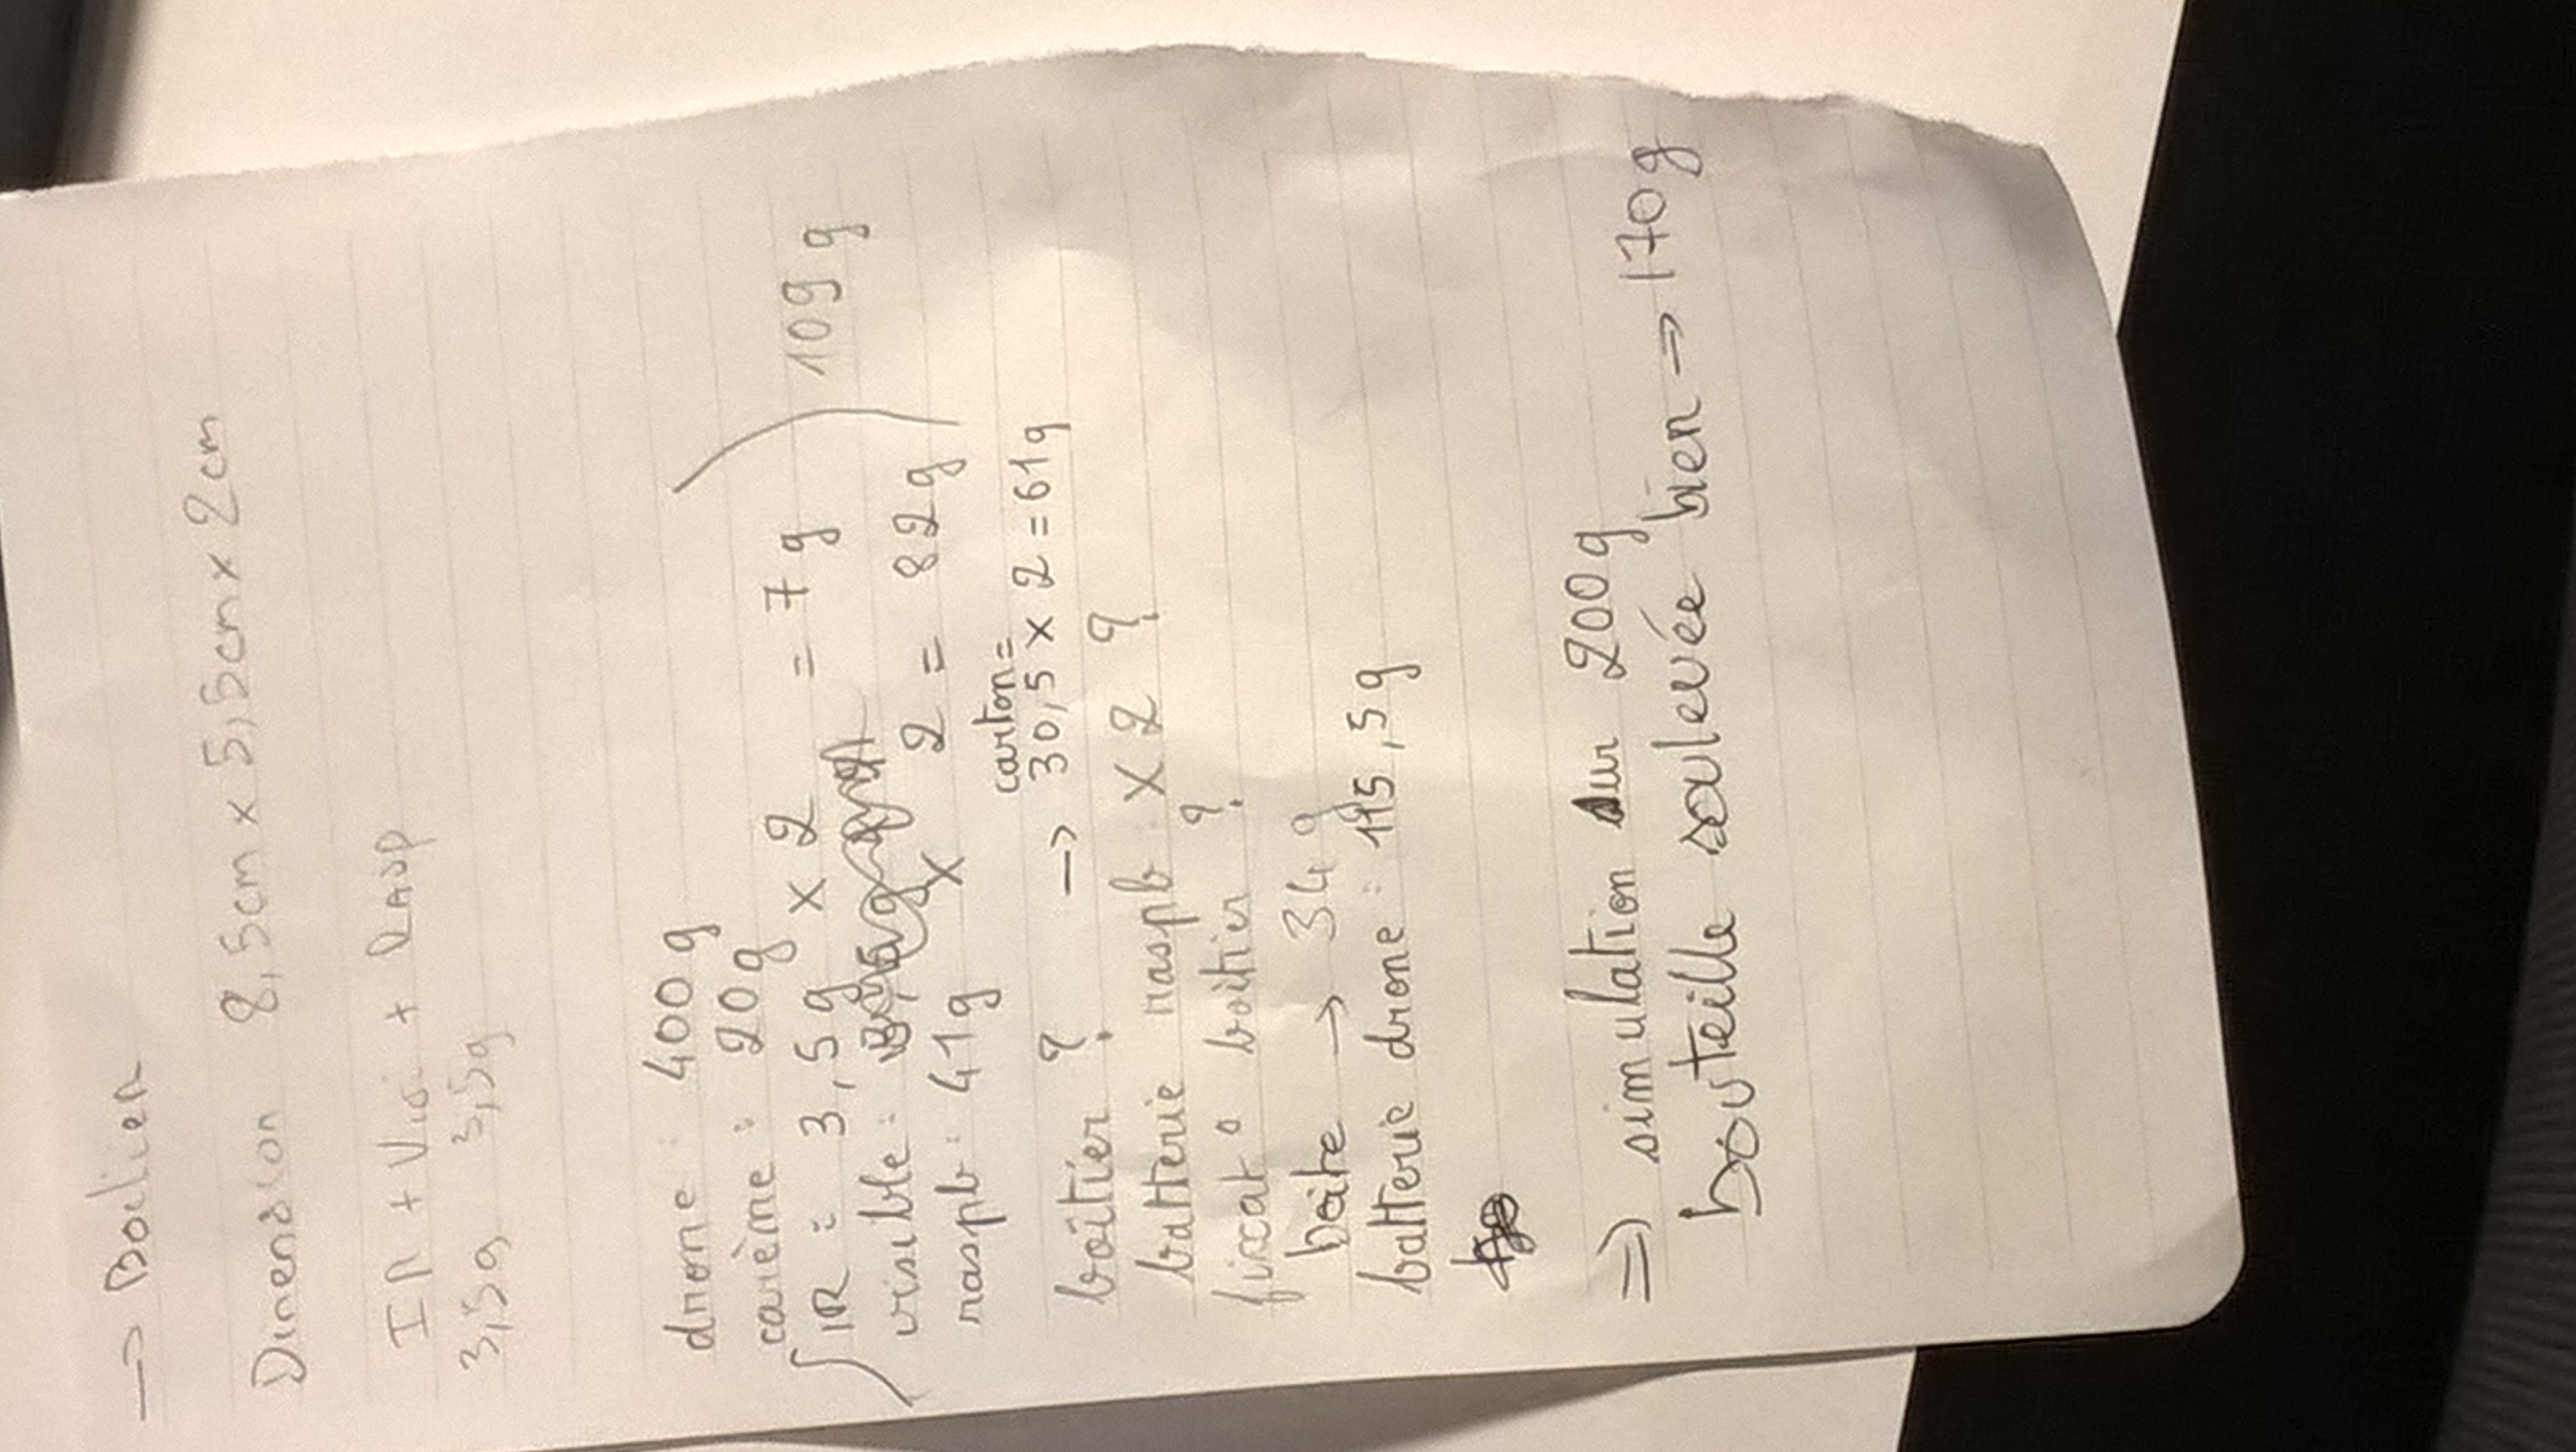 → Boitier
Dimension 8,5cm x 5,5cm x 2cm
IR + Visi + RASP
3,5g 3,5g
drone : 400g
carème : 20g
IR : 3,5g x 2 = 7g
109g
visible :
raspb : 41g x 2 = 82g
carton =
boîtier ? → 30,5 x 2 = 61g
batterie raspb x 2 ?
fixat° boitier ?
boite → 34g
batterie drone : 115,5g
⇒ simulation sur 200g
bouteille soulevée bien ⇒ 170g